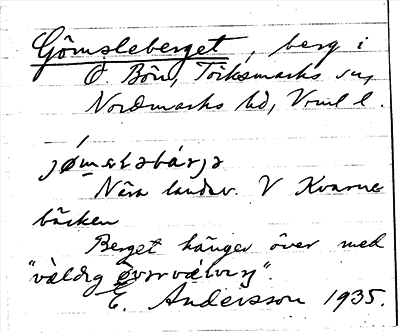 Gömsleberget, berg i
Ö. Bön, Töcksmarks sn,
Nordmarks hd, Vrml l.
jǿmsləbárjə
Nära landsv. V Kvarne
bäcken
Berget hänger över med
"väldig
E. Andersson 1935.